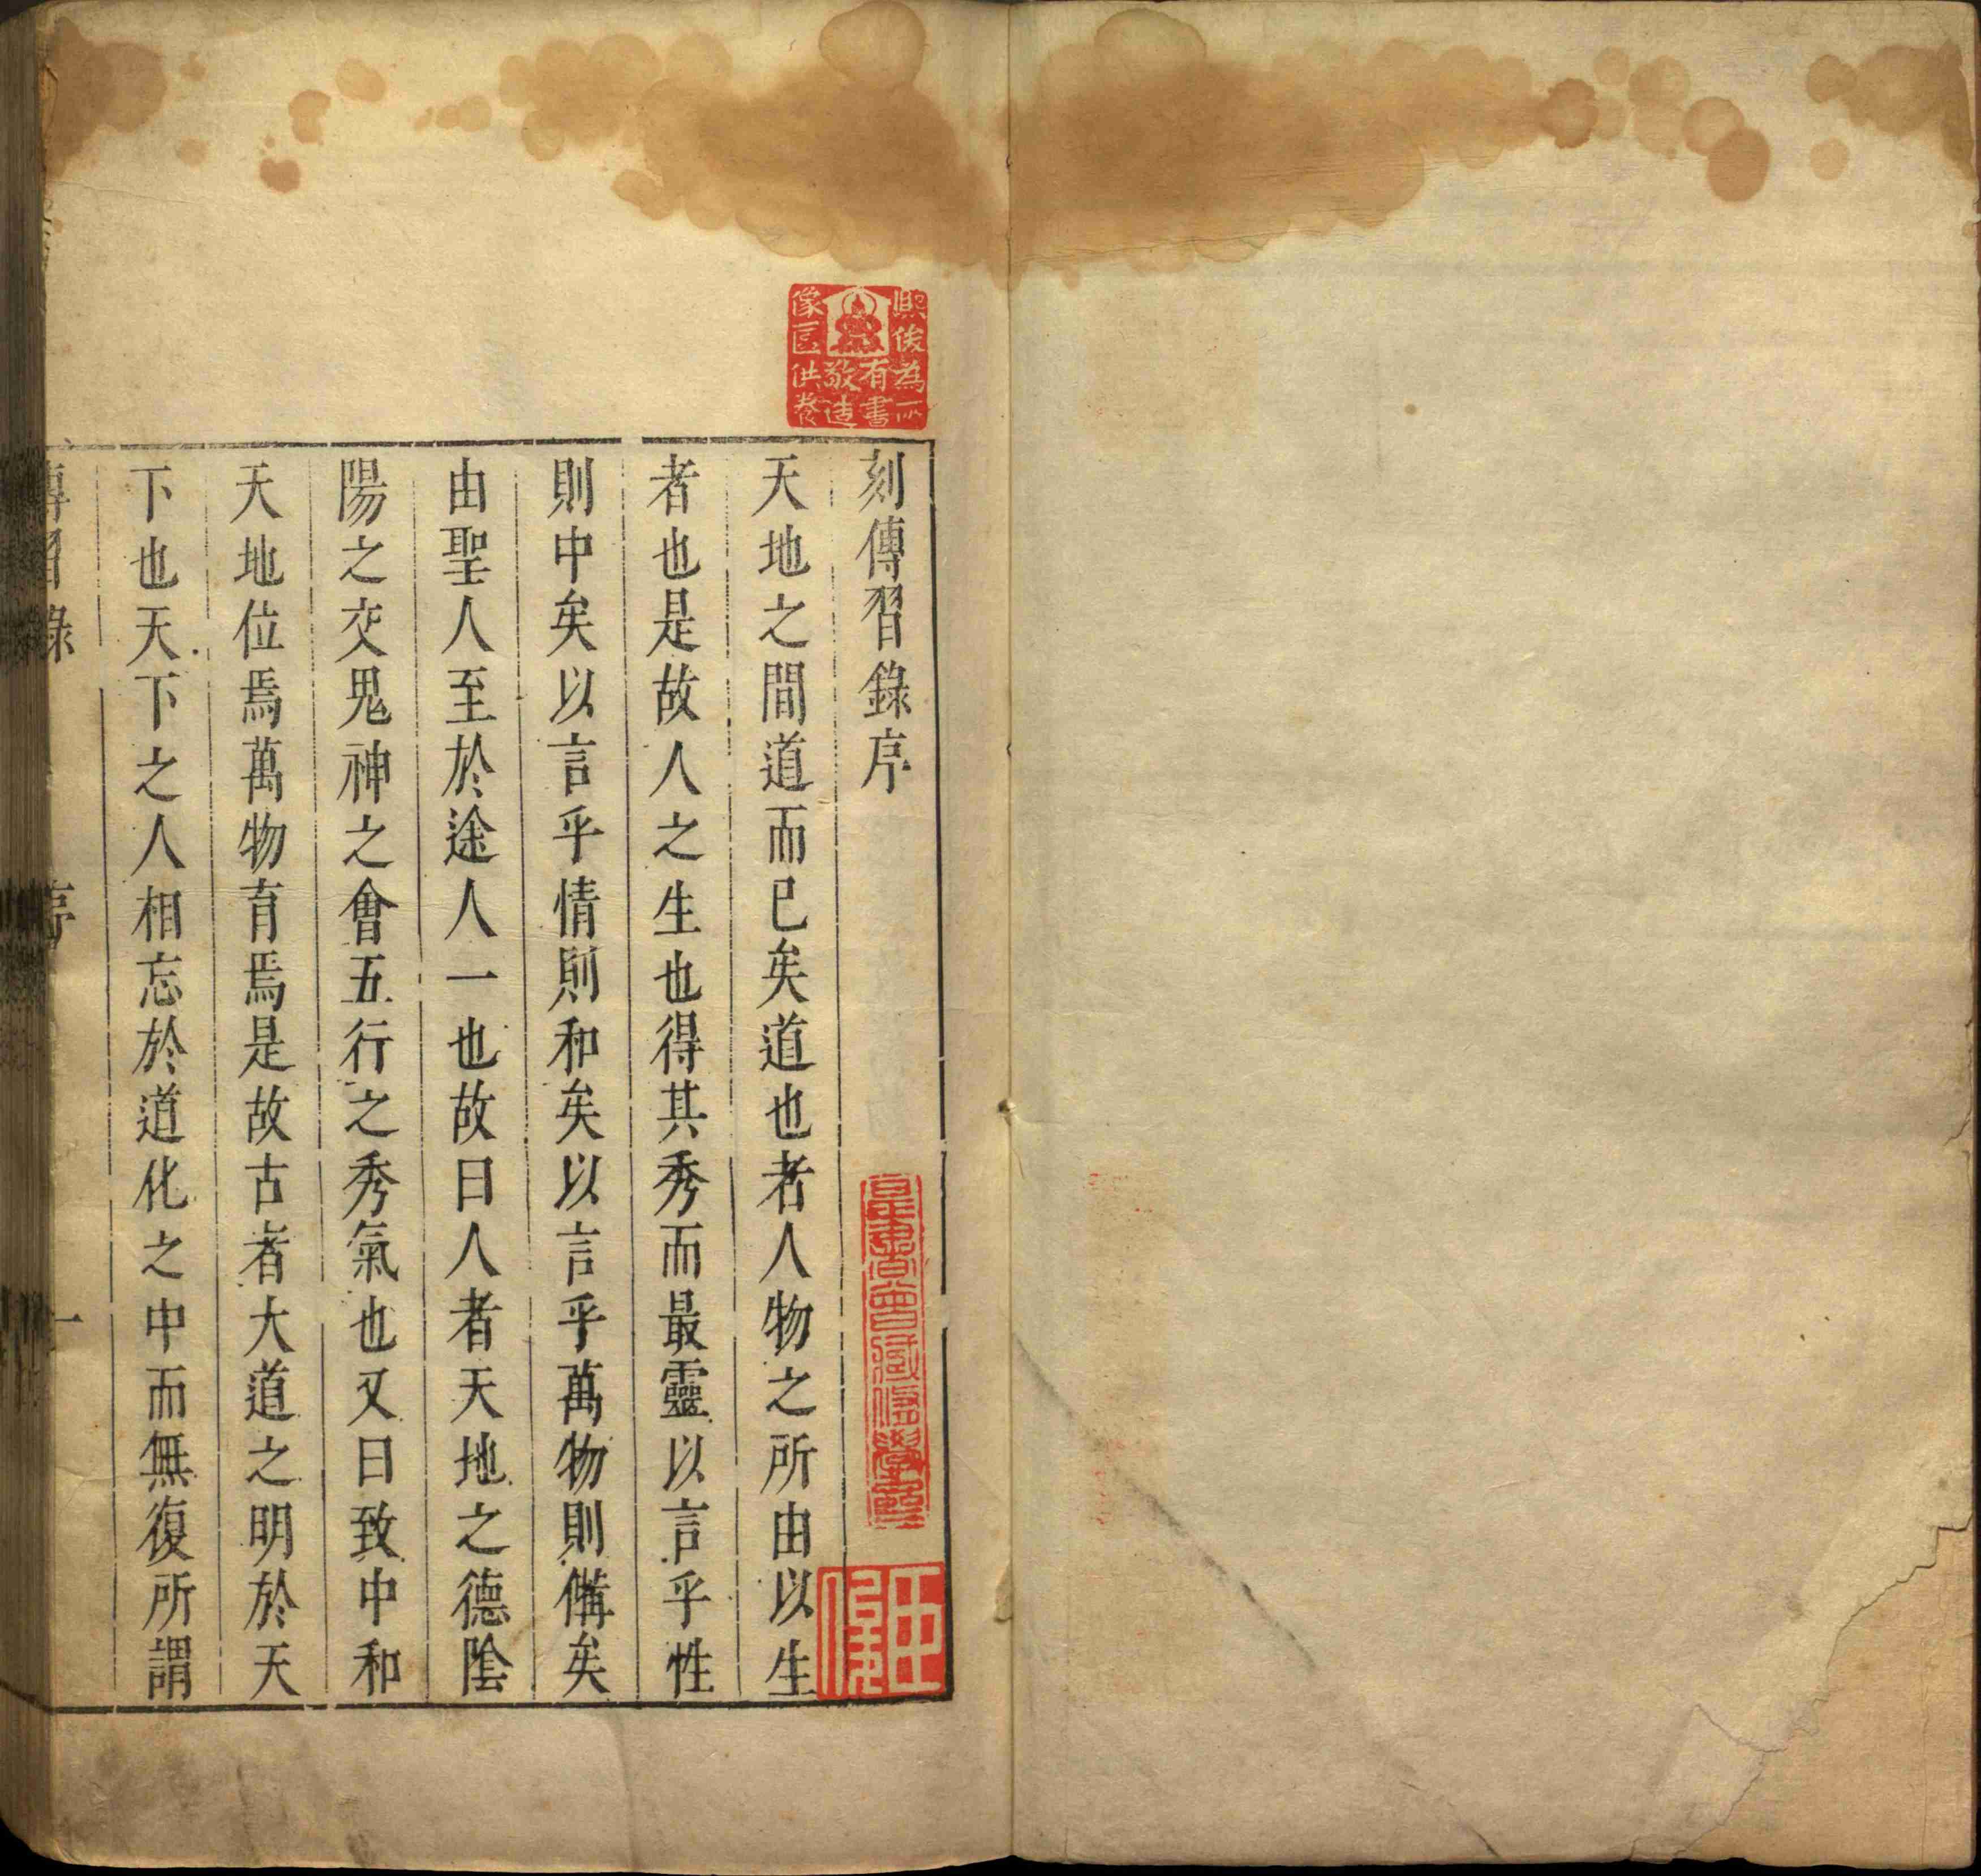 刻傳習錄序
天地之間道而已矣道也者人物之所由以生
者也是故人之生也得其秀而最靈以言乎性
則中矣以言乎情則和矣以言乎萬物則備矣
由聖人至於途人一也故曰人者天地之德陰
陽之交鬼神之會五行之秀氣也又曰致中和
天地位焉萬物育焉是故古者大道之明於天
下也天下之人相忘於道化之中而無復所謂
傳習錄
序
一
熙俊為一
有書
敬造
像區供養